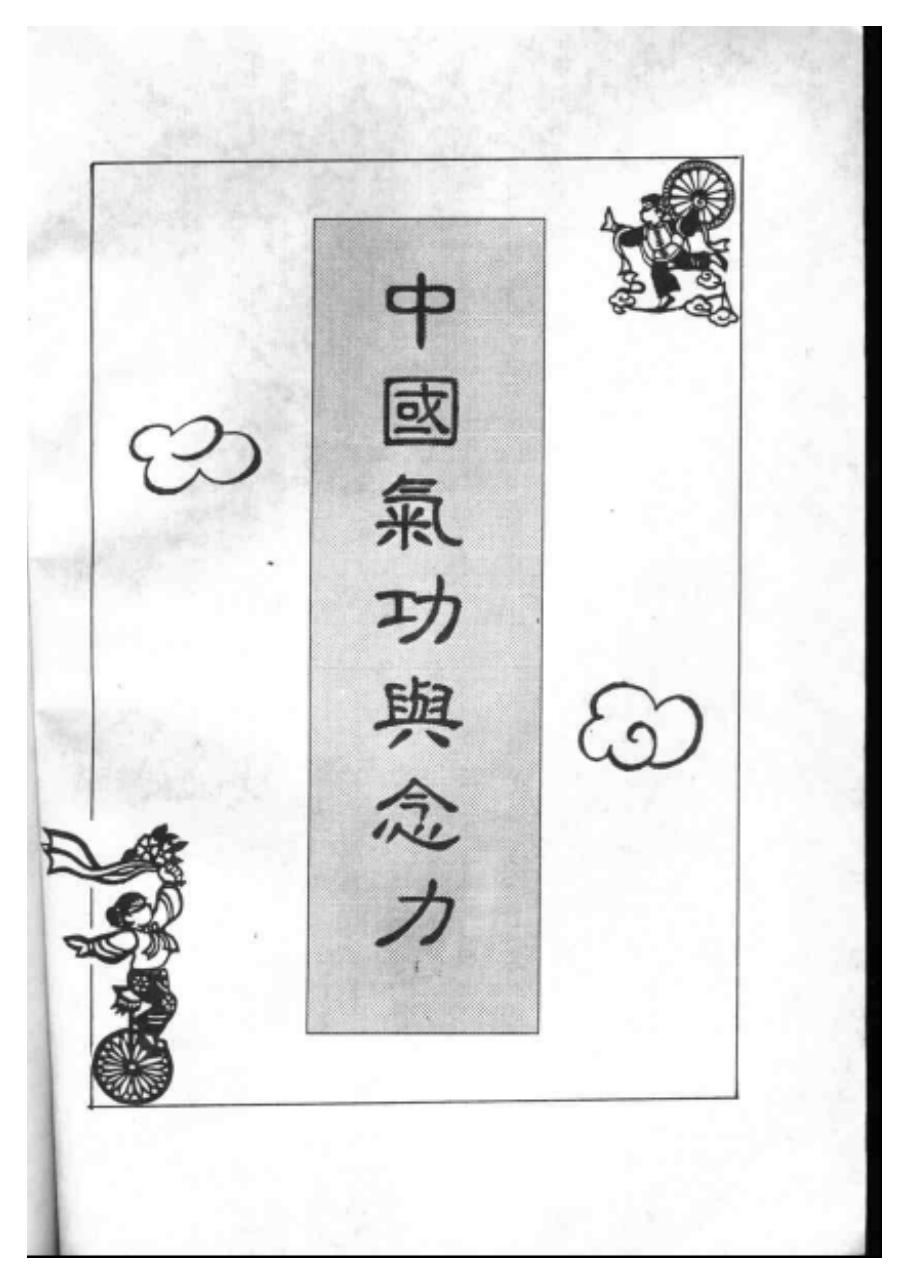 中國氣功與念力